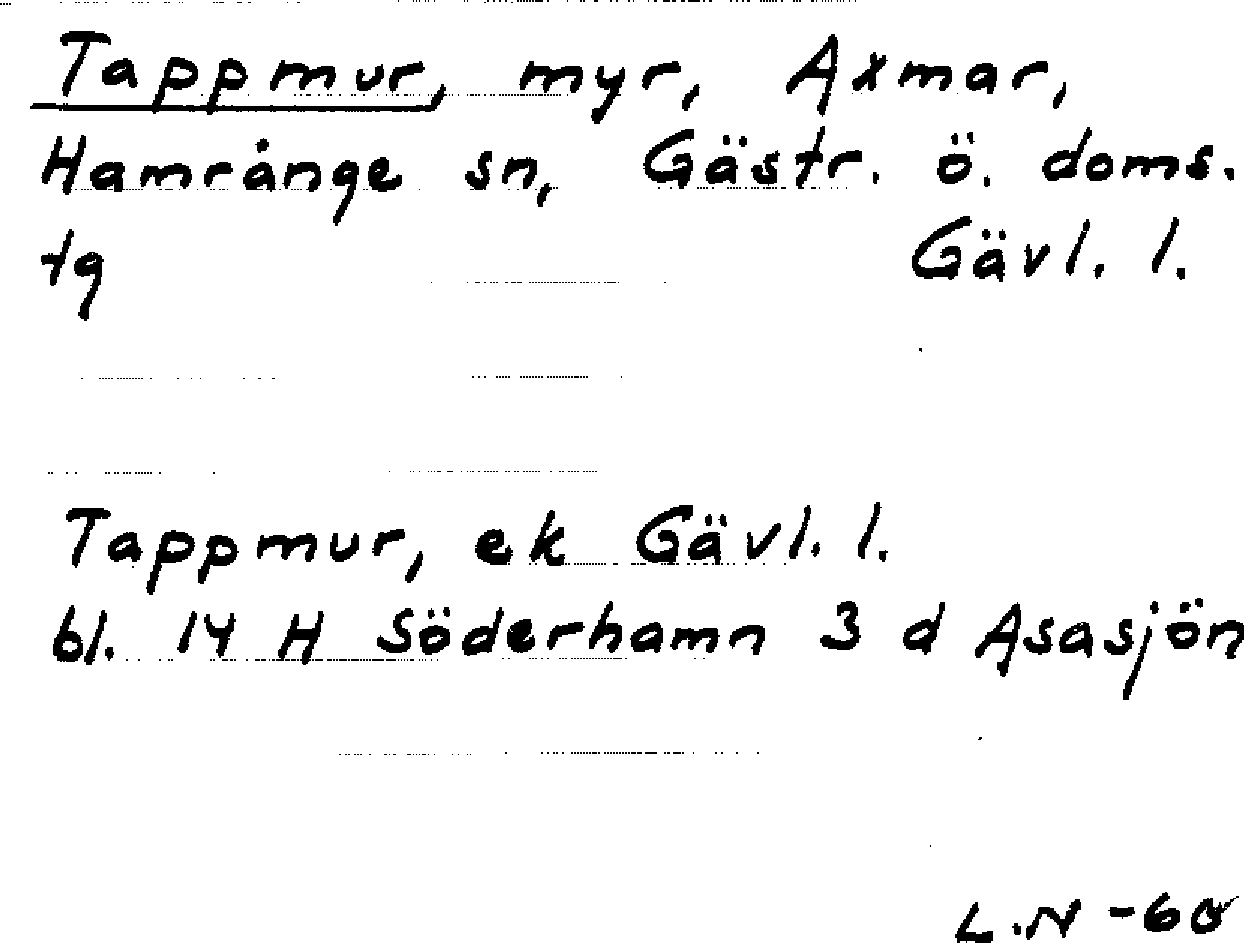 Tappmur, myr, Axmar,
Hamrånge sn, Gästr. ö. doms.
tg Gävl. l.
Tappmur, ek Gävl. l.
bl. 14 H Söderhamn 3 d Asasjön
L.N -60